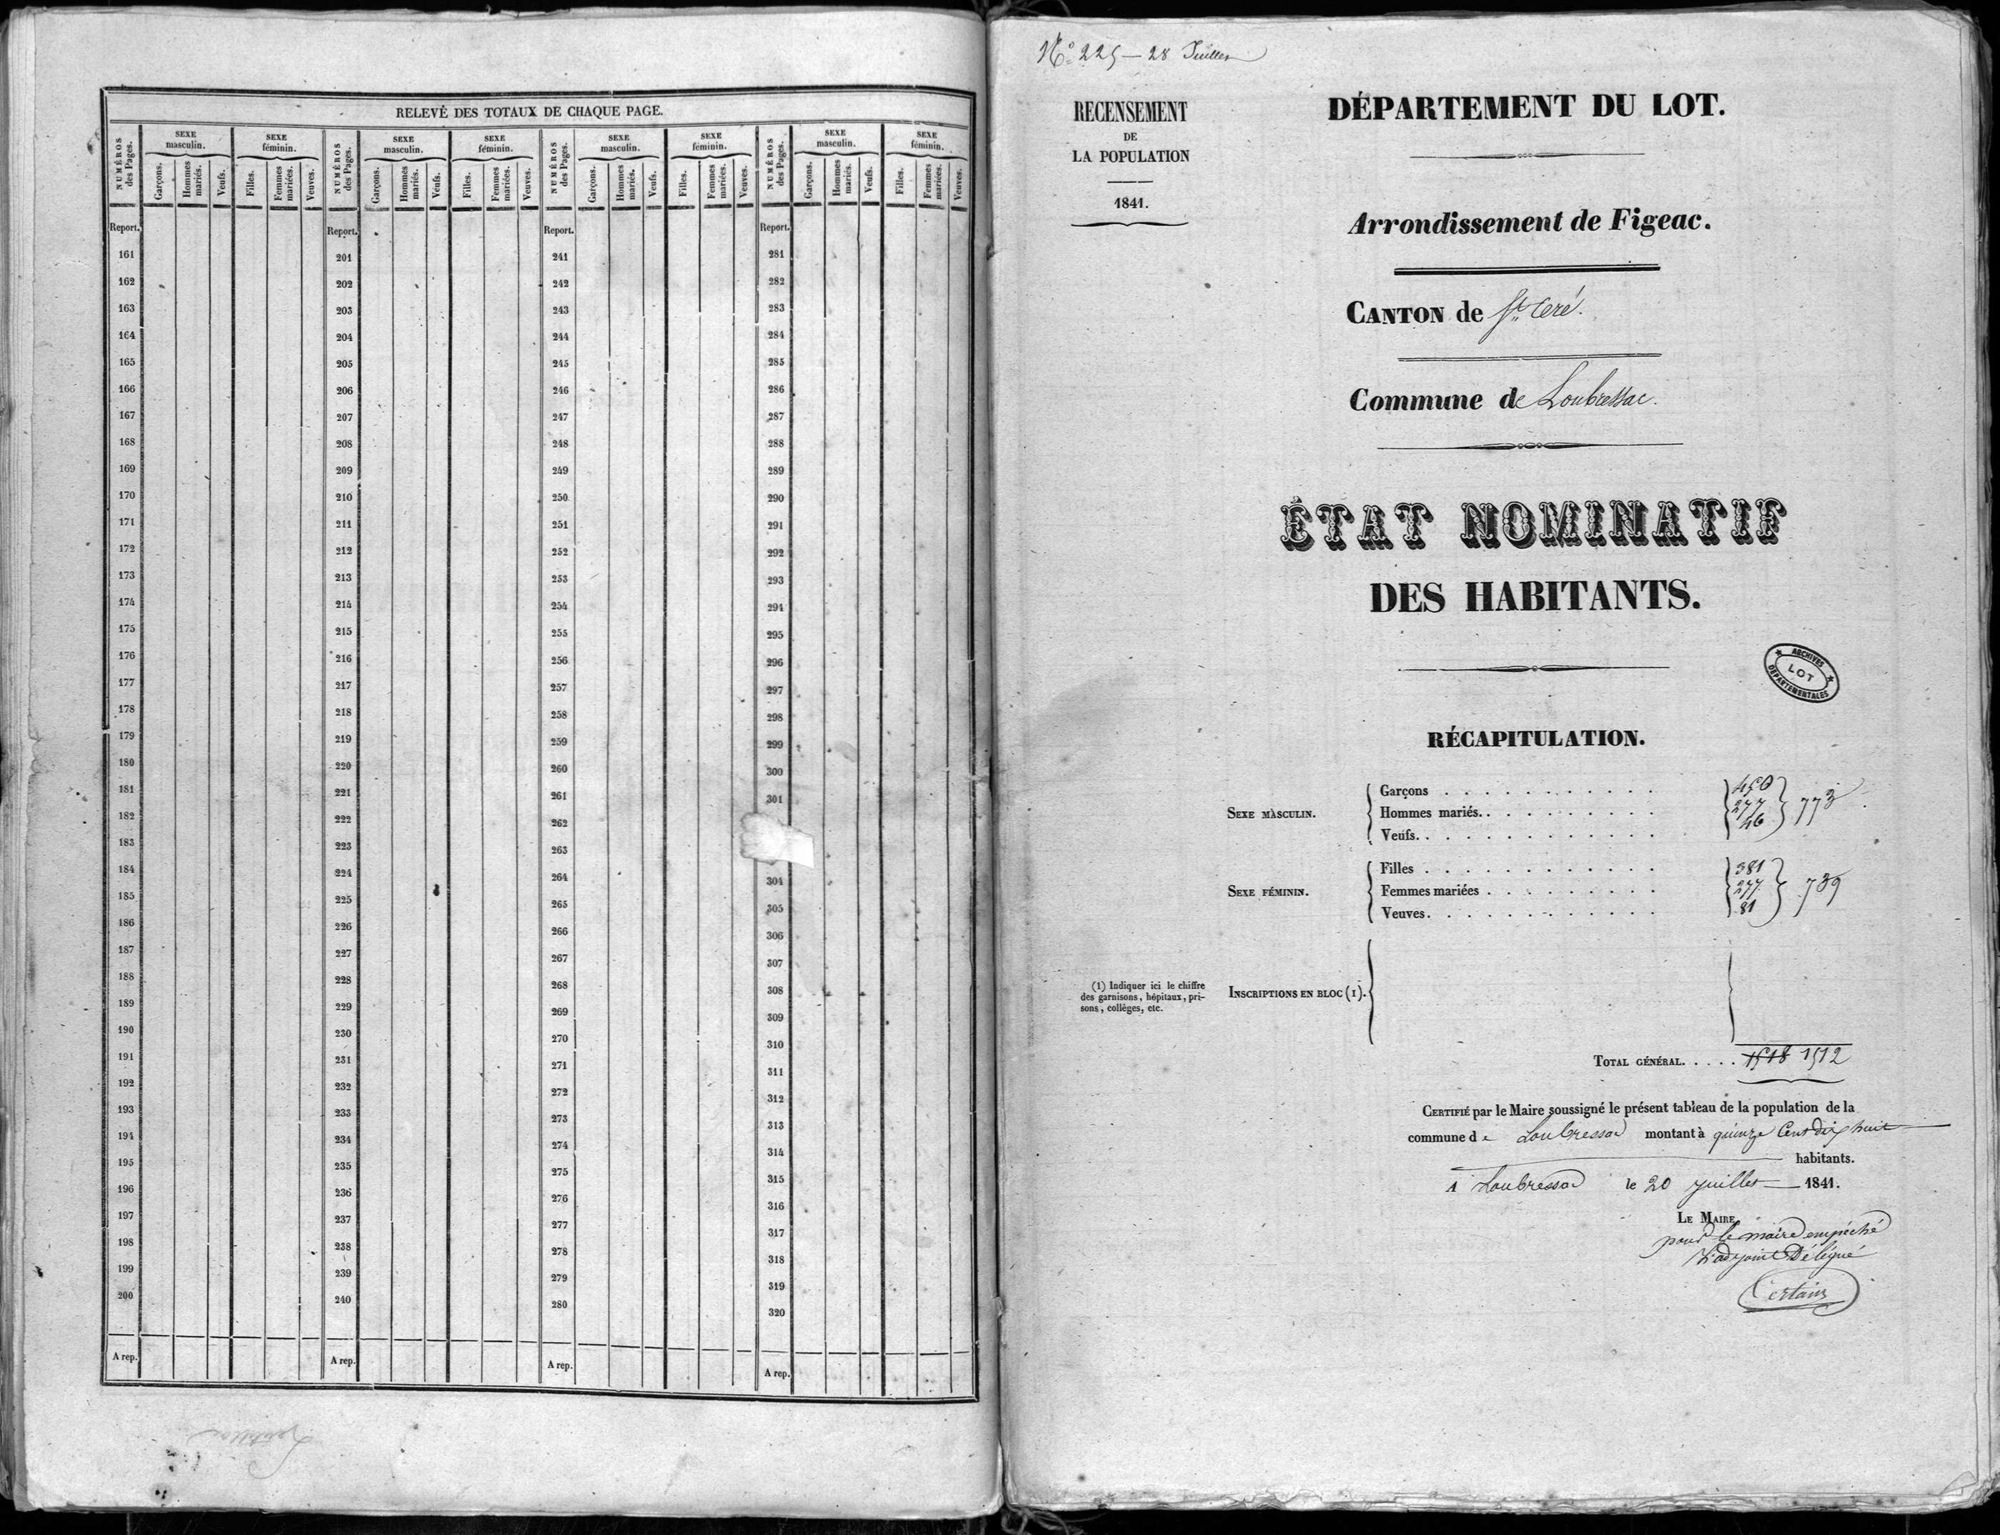 RELEVÉ DES TOTAUX DE CHAQUE PAGE.
NUMÉROS des Pages. SEXE masculin. SEXE féminin. NUMÉROS des Pages. SEXE masculin. SEXE féminin. NUMÉROS des Pages. SEXE masculin. SEXE féminin. NUMÉROS des Pages. SEXE masculin. SEXE féminin.
Garçons. Hommes mariés. Veufs. Filles. Femmes mariées. Veuves. Garçons. Hommes mariés. Veufs. Filles. Femmes mariées. Veuves. Garçons. Hommes mariés. Veufs. Filles. Femmes mariées. Veuves. Garçons. Hommes mariés. Veufs. Filles. Femmes mariées. Veuves.
Report. Report. Report. Report.
161 201 241 281
162 202 242 282
163 203 243 283
164 204 244 284
165 205 245 285
166 206 246 286
167 207 247 287
168 208 248 288
169 209 249 289
170 210 250 290
171 211 251 291
172 212 252 292
173 213 253 293
174 214 254 294
175 215 255 295
176 216 256 296
177 217 257 297
178 218 258 298
179 219 259 299
180 220 260 300
181 221 261 301
182 222 262
183 223 263
184 224 264 304
185 225 265 305
186 226 266 306
187 227 267 307
188 228 268 308
189 229 269 309
190 230 270 310
191 231 271 311
192 232 272 312
193 233 273 313
194 234 274 314
195 235 275 315
196 236 276 316
197 237 277 317
198 238 278 318
199 239 279 319
200 240 280 320
A rep. A rep. A rep. A rep.
N° 225 — 28 Juillet
RECENSEMENT
DE
LA POPULATION
1841.
DÉPARTEMENT DU LOT.
Arrondissement de Figeac.
CANTON de St. Ceré.
Commune de Loubressac.
ÉTAT NOMINATIF
DES HABITANTS.
ARCHIVES
LOT
DÉPARTEMENTALES
RÉCAPITULATION.
SEXE MASCULIN. Garçons 450
Hommes mariés. 277 773
Veufs. 46
SEXE FÉMININ. Filles 381
Femmes mariées 277 739
Veuves. 81
(1) Indiquer ici le chiffre
des garnisons, hôpitaux, pri-
sons, collèges, etc.
INSCRIPTIONS EN BLOC (1).
TOTAL GÉNÉRAL. 1518 1512
CERTIFIÉ par le Maire soussigné le présent tableau de la population de la
commune de Loubressac montant à quinze Cent dix huit
habitants.
A Loubressac le 20 juillet 1841.
LE MAIRE,
pour le maire empéché
L'adjoint Délégué
Certain